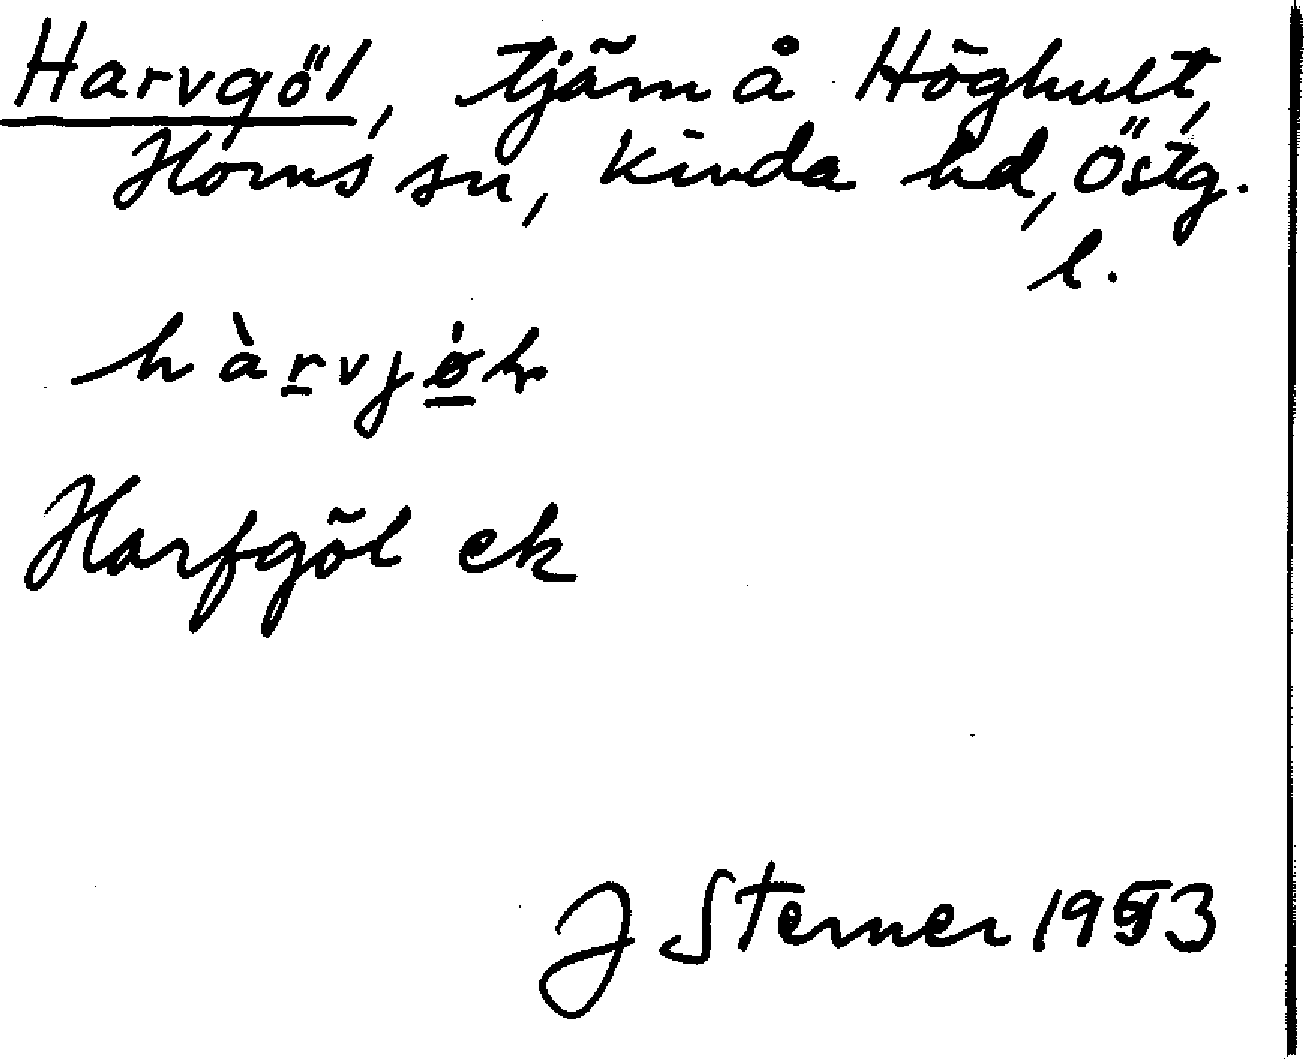 Harvgöl, tjärn å Höghult,
Horns sn, Kinda hd, Östg.
l.
hàrvjø̀l
Harfgöl ek
J Sterner 1953